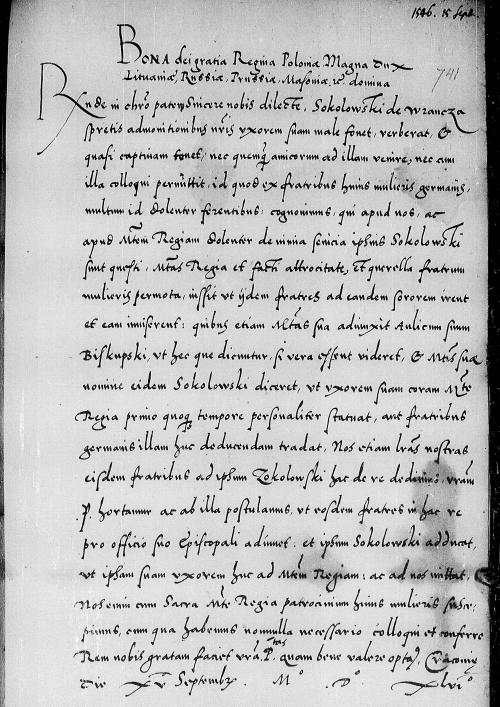 1546. 15 Sept.
741
BONA dei gratia Regina Poloniæ Magna Dux
Lituaniæ, Russiæ, Prussiæ, Masoniæ, ec domina
Rnde in chro pater syncere nobis dilecte, Sokolowski de Wrancza
spretis admonitionibus nris vxorem suam male fouet, verberat, &
quasi captiuam tenet, nec quemq amicorum ad illam venire, nec cum
illa colloqui permittit, id quod ex fratribus huius mulieris germanis,
multum id dolenter ferentibus cognouimus, qui apud nos, ac
apud Mtem Regiam dolenter de nimia seuicia ipsius Sokolowski
sunt questi, Mtas Regia et facti attrocitate, Et querella fratrum
mulieris permota, iussit vt ijdem fratres ad eandem sororem irent
et eam inuiserent: quibus etiam Mtas sua adiunxit Aulicum suum
Biskupski, vt hec que dicuntur, si vera essent videret, & Mtis suæ
nomine eidem Sokolowski diceret, vt vxorem suam coram Mte
Regia primo quoq tempore personaliter statuat, aut fratribus
germanis illam huc deducendam tradat, Nos etiam lras nostras
eisdem fratribus ad ipsum Zokolowski hac de re dedimus, vram
P. hortamur ac ab illa postulamus, vt eosdem fratres in hac re
pro officio suo Episcopali adiuuet: et ipsum Sokolowski adducat,
vt ipsam suam vxorem huc ad Mtem Regiam: ac ad nos mittat.
Nos enim cum Sacra Mte Regia patrocinium huius mulieris susce-
pimus, cum qua habemus nonnulla necessario colloqui et conferre
Rem nobis gratam faciet vra P.tas quam bene valere opta, Cracouię
Die xv Septembr. Mo Do xlvio